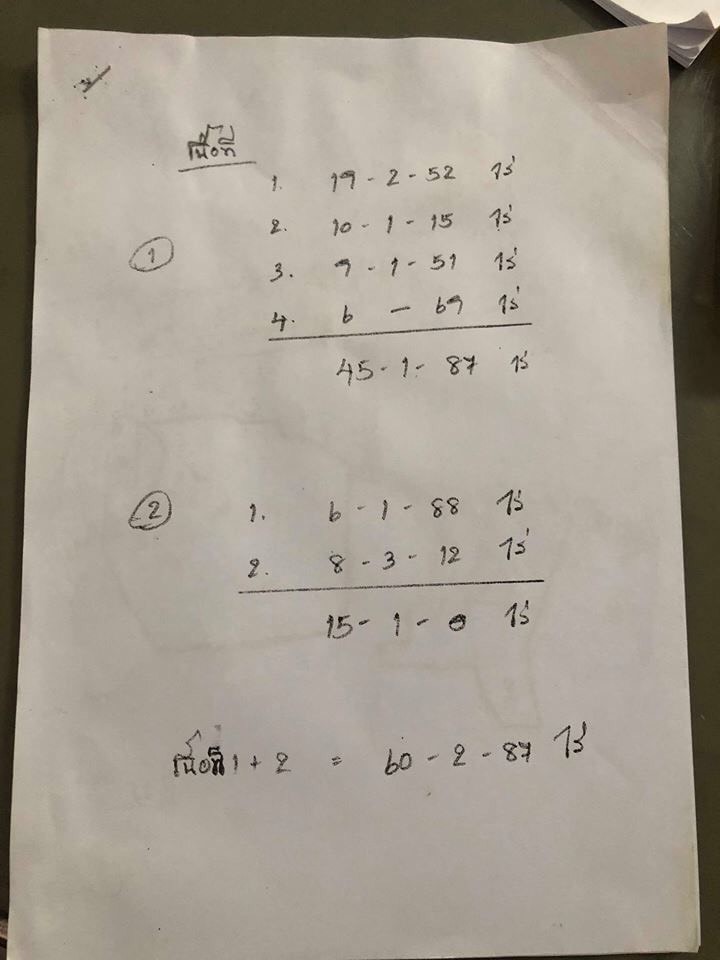 เนื้อที่
1. 19 - 2 - 52 ไร่
2. 10 - 1 - 15 ไร่
① 3. 9 - 1 - 51 ไร่
4. 6 - 69 ไร่
45 - 1 - 87 ไร่
② 1. 6 - 1 - 88 ไร่
2. 8 - 3 - 12 ไร่
15 - 1 - 0 ไร่
เนื้อที่ 1 + 2 = 60 - 2 - 87 ไร่